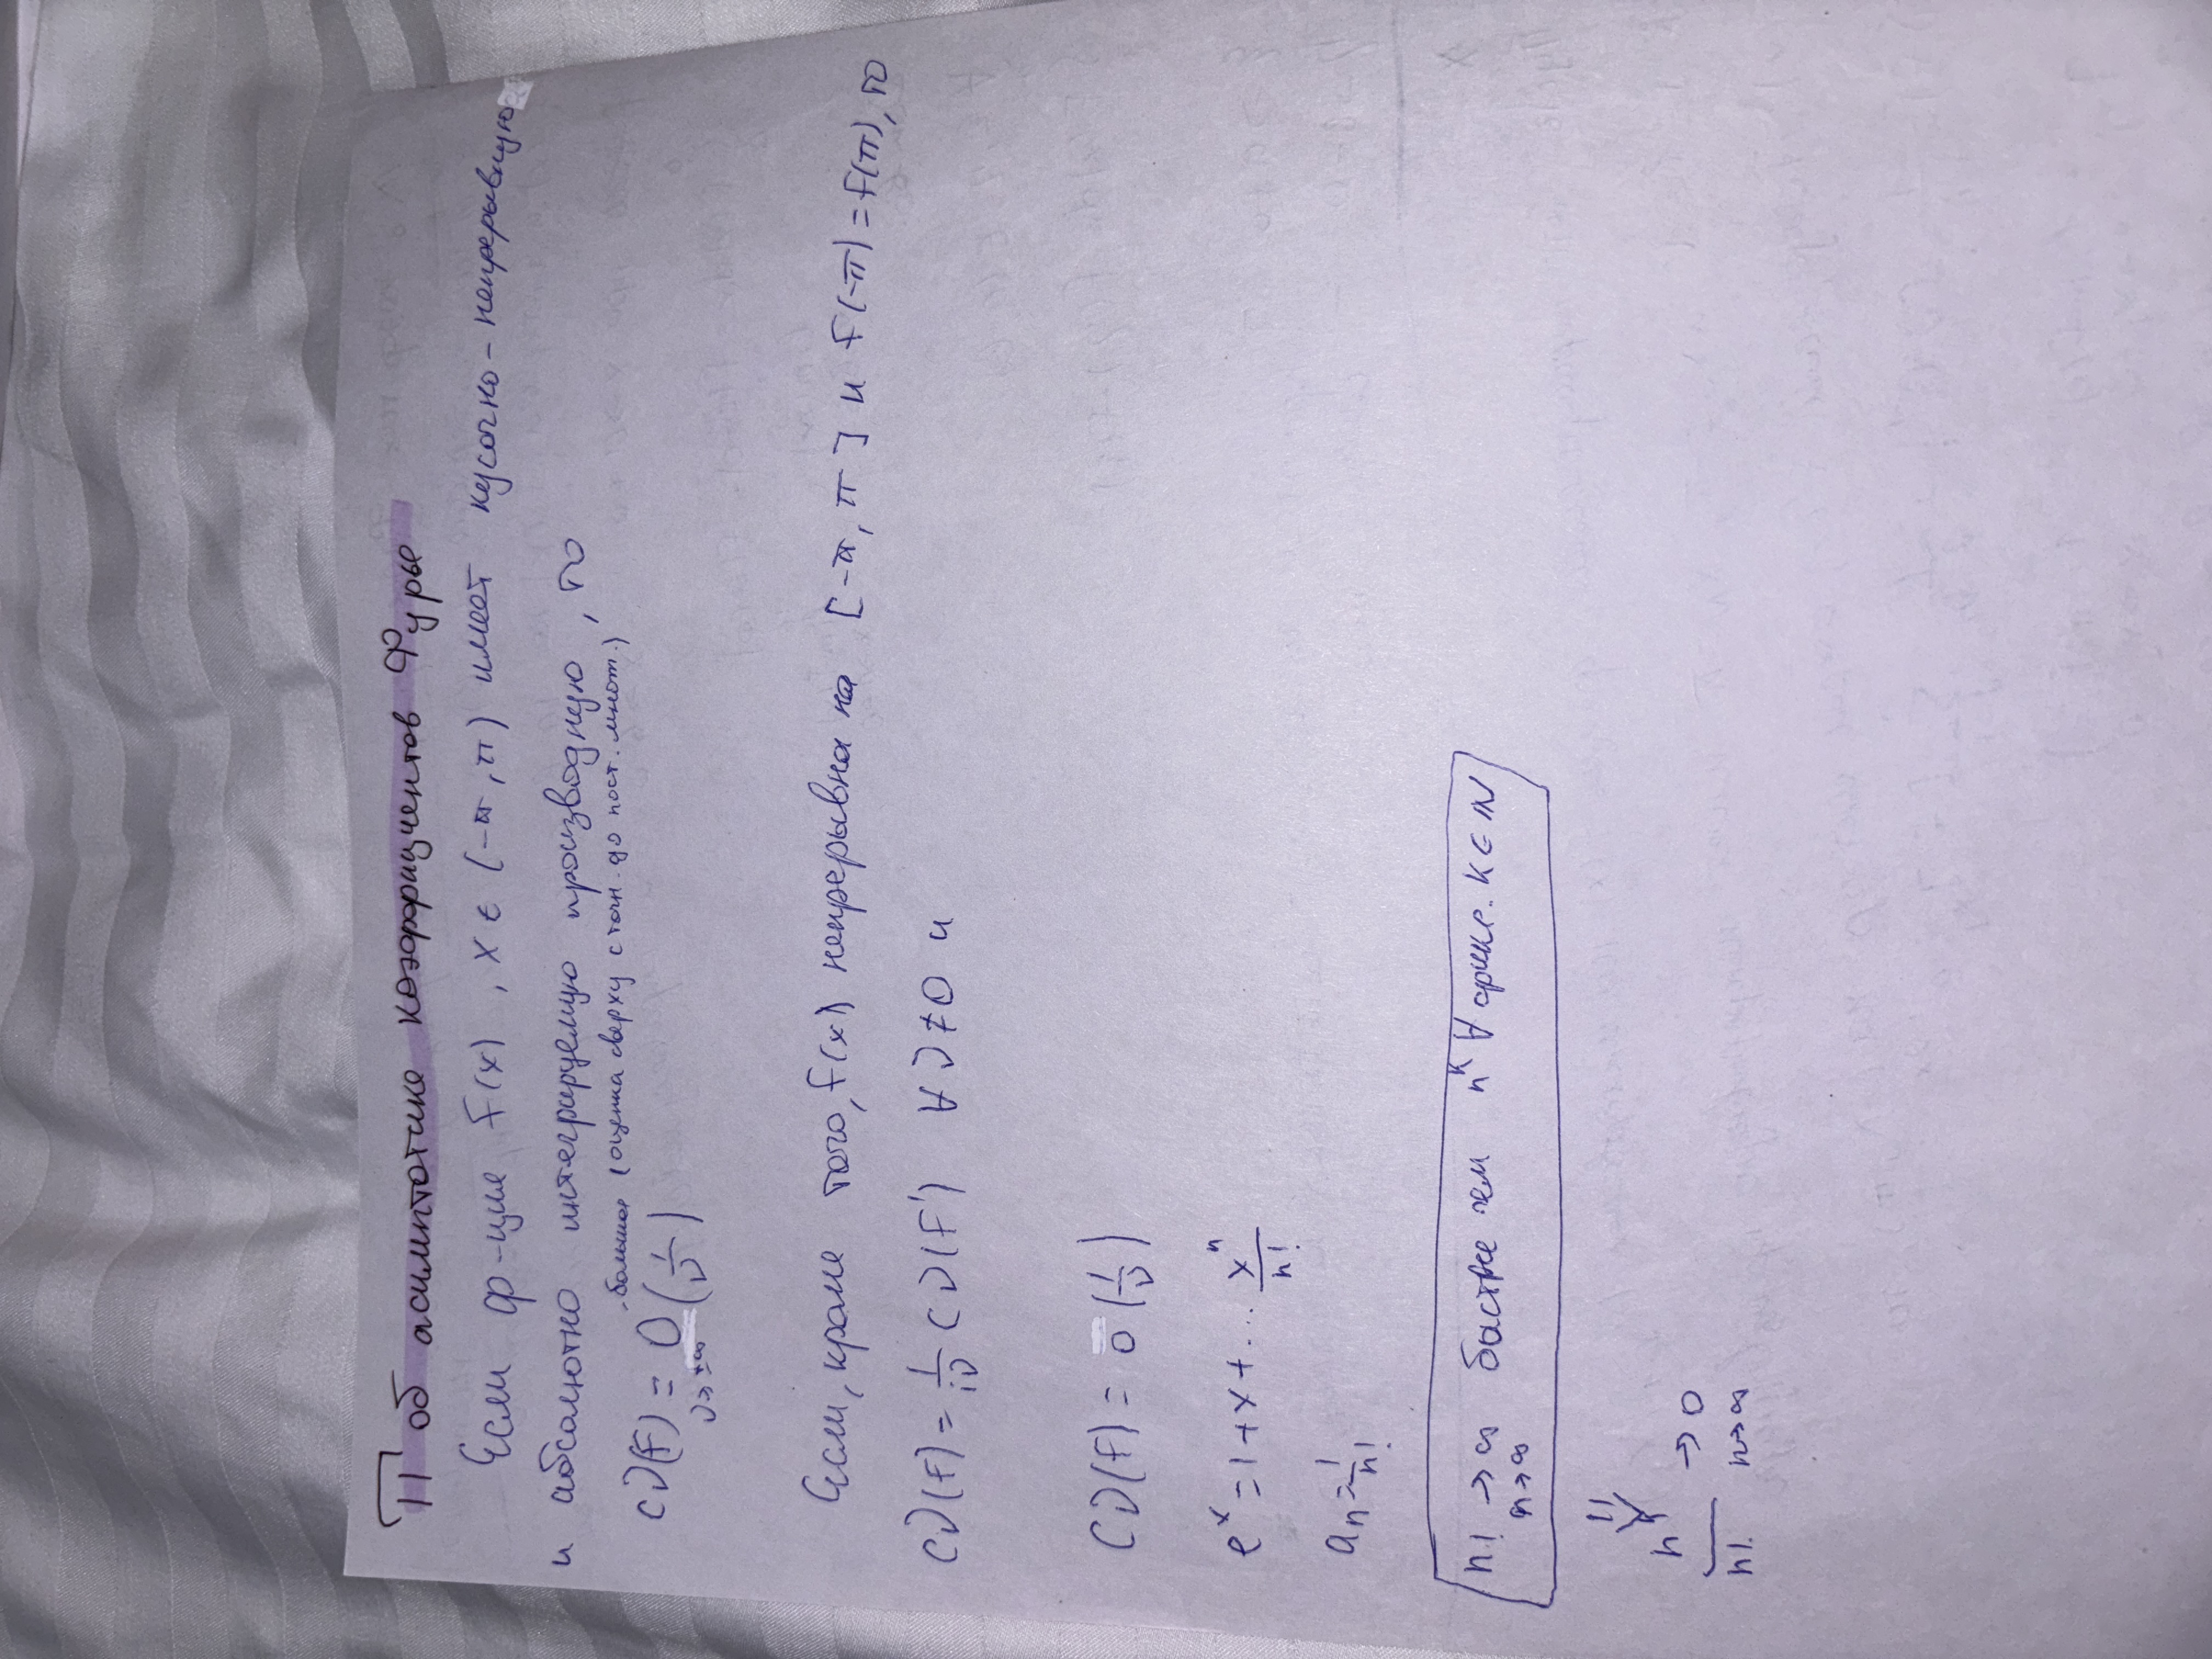 П об асимптотике коэффициентов Фурье
Если ф-ция f(x), x ∈ (-π, π) имеет кусочно-непрерывную
и абсолютно интегрируемую производную, то
большое (оценка сверху с точн. до пост. множ.)
cν(f) = O(1/ν)
ν→±∞
Если, кроме того, f(x) непрерывна на [-π, π] и f(-π)=f(π), то
cν(f) = 1/iν cν(f') ∀ν≠0 и
cν(f) = o(1/ν)
e^x = 1+x+... x^n/n!
a_n = 1/n!
n! → ∞ быстрее чем n^k ∀ фикс. k ∈ ℕ
n→∞
⇓
n^k/n! → 0
n→∞